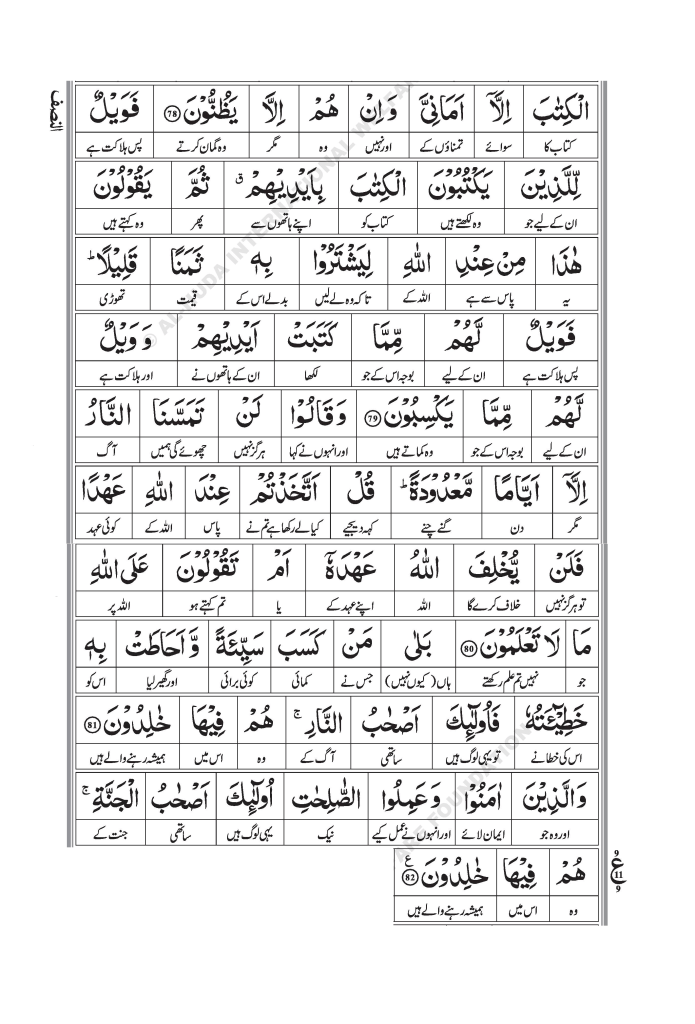 الۡكِتٰبَ اِلَّاۤ اَمَانِىَّ وَاِنۡ هُمۡ اِلَّا يَظُنُّوۡنَ 78 فَوَيۡلٌ
کتاب کا سوائے تمناؤں کے اور نہیں وہ مگر وہ گمان کرتے پس ہلاکت ہے
النصف
لِّلَّذِيۡنَ يَكۡتُبُوۡنَ الۡكِتٰبَ بِاَيۡدِيۡهِمۡ ق ثُمَّ يَقُوۡلُوۡنَ
ان کے لیے جو وہ لکھتے ہیں کتاب کو اپنے ہاتھوں سے پھر وہ کہتے ہیں
هٰذَا مِنۡ عِنۡدِ اللّٰهِ لِيَشۡتَرُوۡا بِهٖ ثَمَنًا قَلِيۡلًا ؕ
یہ پاس سے ہے اللہ کے تاکہ وہ لے لیں بدلے اس کے قیمت تھوڑی
فَوَيۡلٌ لَّهُمۡ مِّمَّا كَتَبَتۡ اَيۡدِيۡهِمۡ وَ وَيۡلٌ
پس ہلاکت ہے ان کے لیے بوجہ اس کے جو لکھا ان کے ہاتھوں نے اور ہلاکت ہے
لَّهُمۡ مِّمَّا يَكۡسِبُوۡنَ 79 وَقَالُوۡا لَنۡ تَمَسَّنَا النَّارُ
ان کے لیے بوجہ اس کے جو وہ کماتے ہیں اور انہوں نے کہا ہرگز نہیں چھوئے گی ہمیں آگ
اِلَّاۤ اَيَّامًا مَّعۡدُوۡدَةً ؕ قُلۡ اَتَّخَذۡتُمۡ عِنۡدَ اللّٰهِ عَهۡدًا
مگر دن گنے چنے کہہ دیجیے کیا لے رکھا ہے تم نے پاس اللہ کے کوئی عہد
فَلَنۡ يُّخۡلِفَ اللّٰهُ عَهۡدَهٗۤ اَمۡ تَقُوۡلُوۡنَ عَلَى اللّٰهِ
تو ہرگز نہیں خلاف کرے گا اللہ اپنے عہد کے یا تم کہتے ہو اللہ پر
مَا لَا تَعۡلَمُوۡنَ 80 بَلٰى مَنۡ كَسَبَ سَيِّئَةً وَّاَحَاطَتۡ بِهٖ
جو نہیں تم علم رکھتے ہاں (کیوں نہیں) جس نے کمائی کوئی برائی اور گھیر لیا اس کو
خَطِيۡٓــَٔتُهٗ فَاُولٰٓئِكَ اَصۡحٰبُ النَّارِ ۚ هُمۡ فِيۡهَا خٰلِدُوۡنَ 81
اس کی خطا نے تو یہی لوگ ہیں ساتھی آگ کے وہ اس میں ہمیشہ رہنے والے ہیں
وَالَّذِيۡنَ اٰمَنُوۡا وَعَمِلُوا الصّٰلِحٰتِ اُولٰٓئِكَ اَصۡحٰبُ الۡجَنَّةِ ۚ
اور وہ جو ایمان لائے اور انہوں نے عمل کیے نیک یہی لوگ ہیں ساتھی جنت کے
هُمۡ فِيۡهَا خٰلِدُوۡنَ 82 ع
وہ اس میں ہمیشہ رہنے والے ہیں
۹ ع 11 ۹